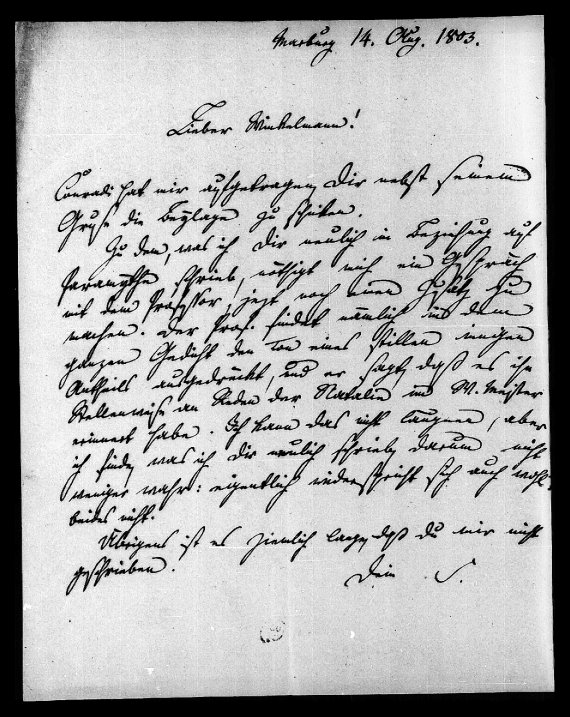 Marburg 14. Aug. 1803.
Lieber Winkelmann!
Conradi hat mir aufgetragen, Dir nebst seinem
Gruse die Beÿlage zu schiken.
Zu dem, was ich Dir neulich in Beziehung auf
schrieb, nöthigt mich ein Gespräch
mit dem Professor, jezt noch einen Zusatz zu
machen. Der Prof. findet nämlich in dem
ganzen Gedicht den Ton eines stillen innigen
Antheils ausgedrückt, und er sagt, daß es ihn
Stellenweise an Reden der Natalie im W. Meister
erinnert habe. Ich kann das nicht läugnen, aber
ich finde, was ich Dir neulich schrieb, darum nicht
weniger wahr: eigentlich widerspricht sich auch wohl
beides nicht.
Übrigens ist es ziemlich lange, daß du mir nicht
geschrieben.
Dein S.